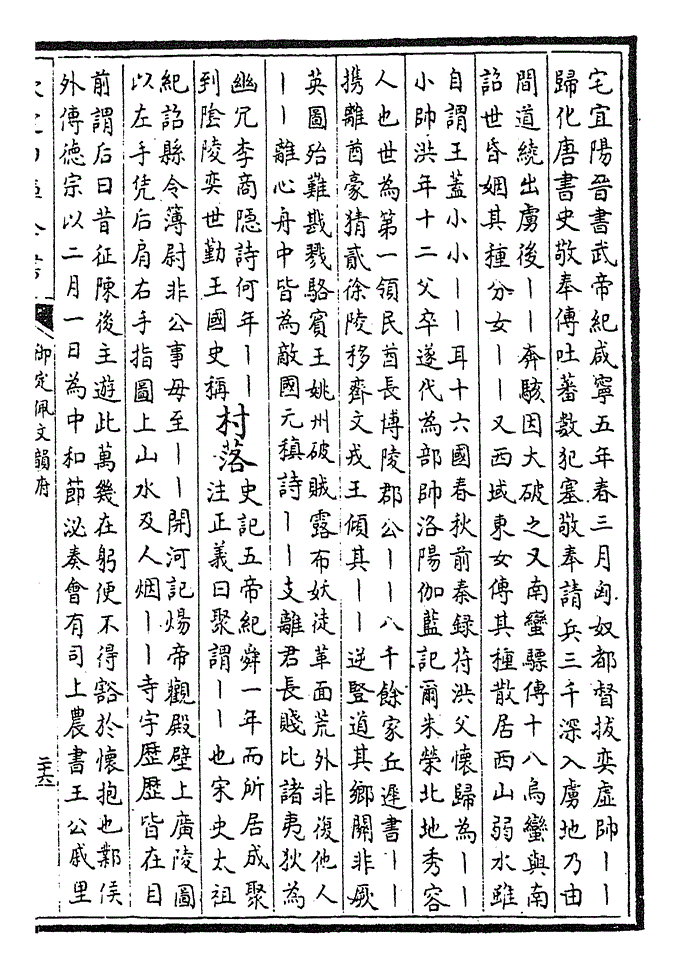 宅宜陽晉書武帝紀咸寧五年春三月匈奴都督拔奕虚帥丨丨
歸化唐書史敬奉傳吐蕃數犯塞敬奉請兵三千深入虜地乃由
間道繞出虜後丨丨奔駭因大破之又南蠻驃傳十八烏蠻與南
詔世昏姻其種分女丨丨又西域東女傳其種散居西山弱水雖
自謂王蓋小小丨丨耳十六國春秋前秦録苻洪父懷歸為丨丨
小帥洪年十二父卒遂代為部帥洛陽伽藍記爾朱榮北地秀容
人也世為第一領民酋長博陵郡公丨丨八千餘家丘遲書丨丨
携離酋豪猜貳徐陵移齊文戎王傾其丨丨逆豎道其鄉關非厥
英圖殆難戡戮駱賓王姚州破賊露布妖徒革面荒外非復他人
丨丨離心舟中皆為敵國元稹詩丨丨支離君長賤比諸夷狄為
幽冗李商隱詩何年丨丨
到陰陵奕世勤王國史稱
村落
史記五帝紀舜一年而所居成聚
注正義曰聚謂丨丨也宋史太祖
紀詔縣令簿尉非公事毋至丨丨開河記煬帝觀殿壁上廣陵圖
以左手凭后肩右手指圖上山水及人烟丨丨寺宇歷歷皆在目
前謂后曰昔征陳後主遊此萬幾在躬便不得豁於懷抱也鄴侯
外傳德宗以二月一日為中和節泌奏會有司上農書王公戚里
御定佩文韻府
二十六